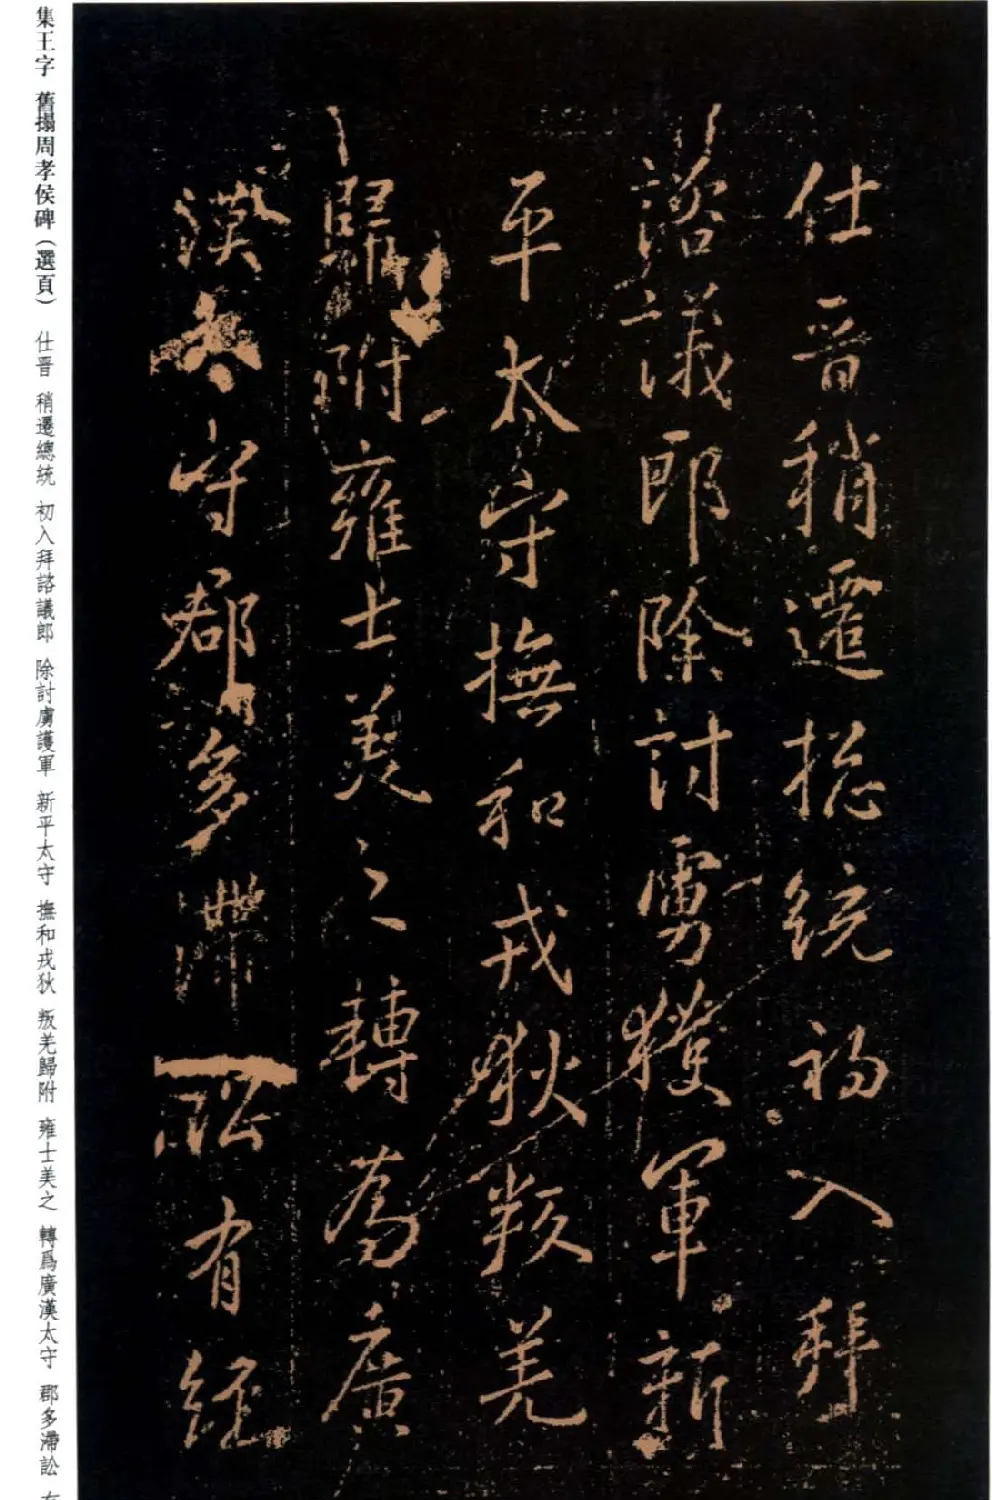 仕晉稍遷揔統初入拜
諮議郎除討虜護軍新
平太守撫和戎狄叛羌
歸附雍士美之轉為廣
漢太守郡多滯訟有經
集王字 舊搨周孝侯碑(選頁) 仕晋 稍遷總統 初入拜諮議郎 除討虜護軍 新平太守 撫和戎狄 叛羌歸附 雍士美之 轉爲廣漢太守 郡多滯訟